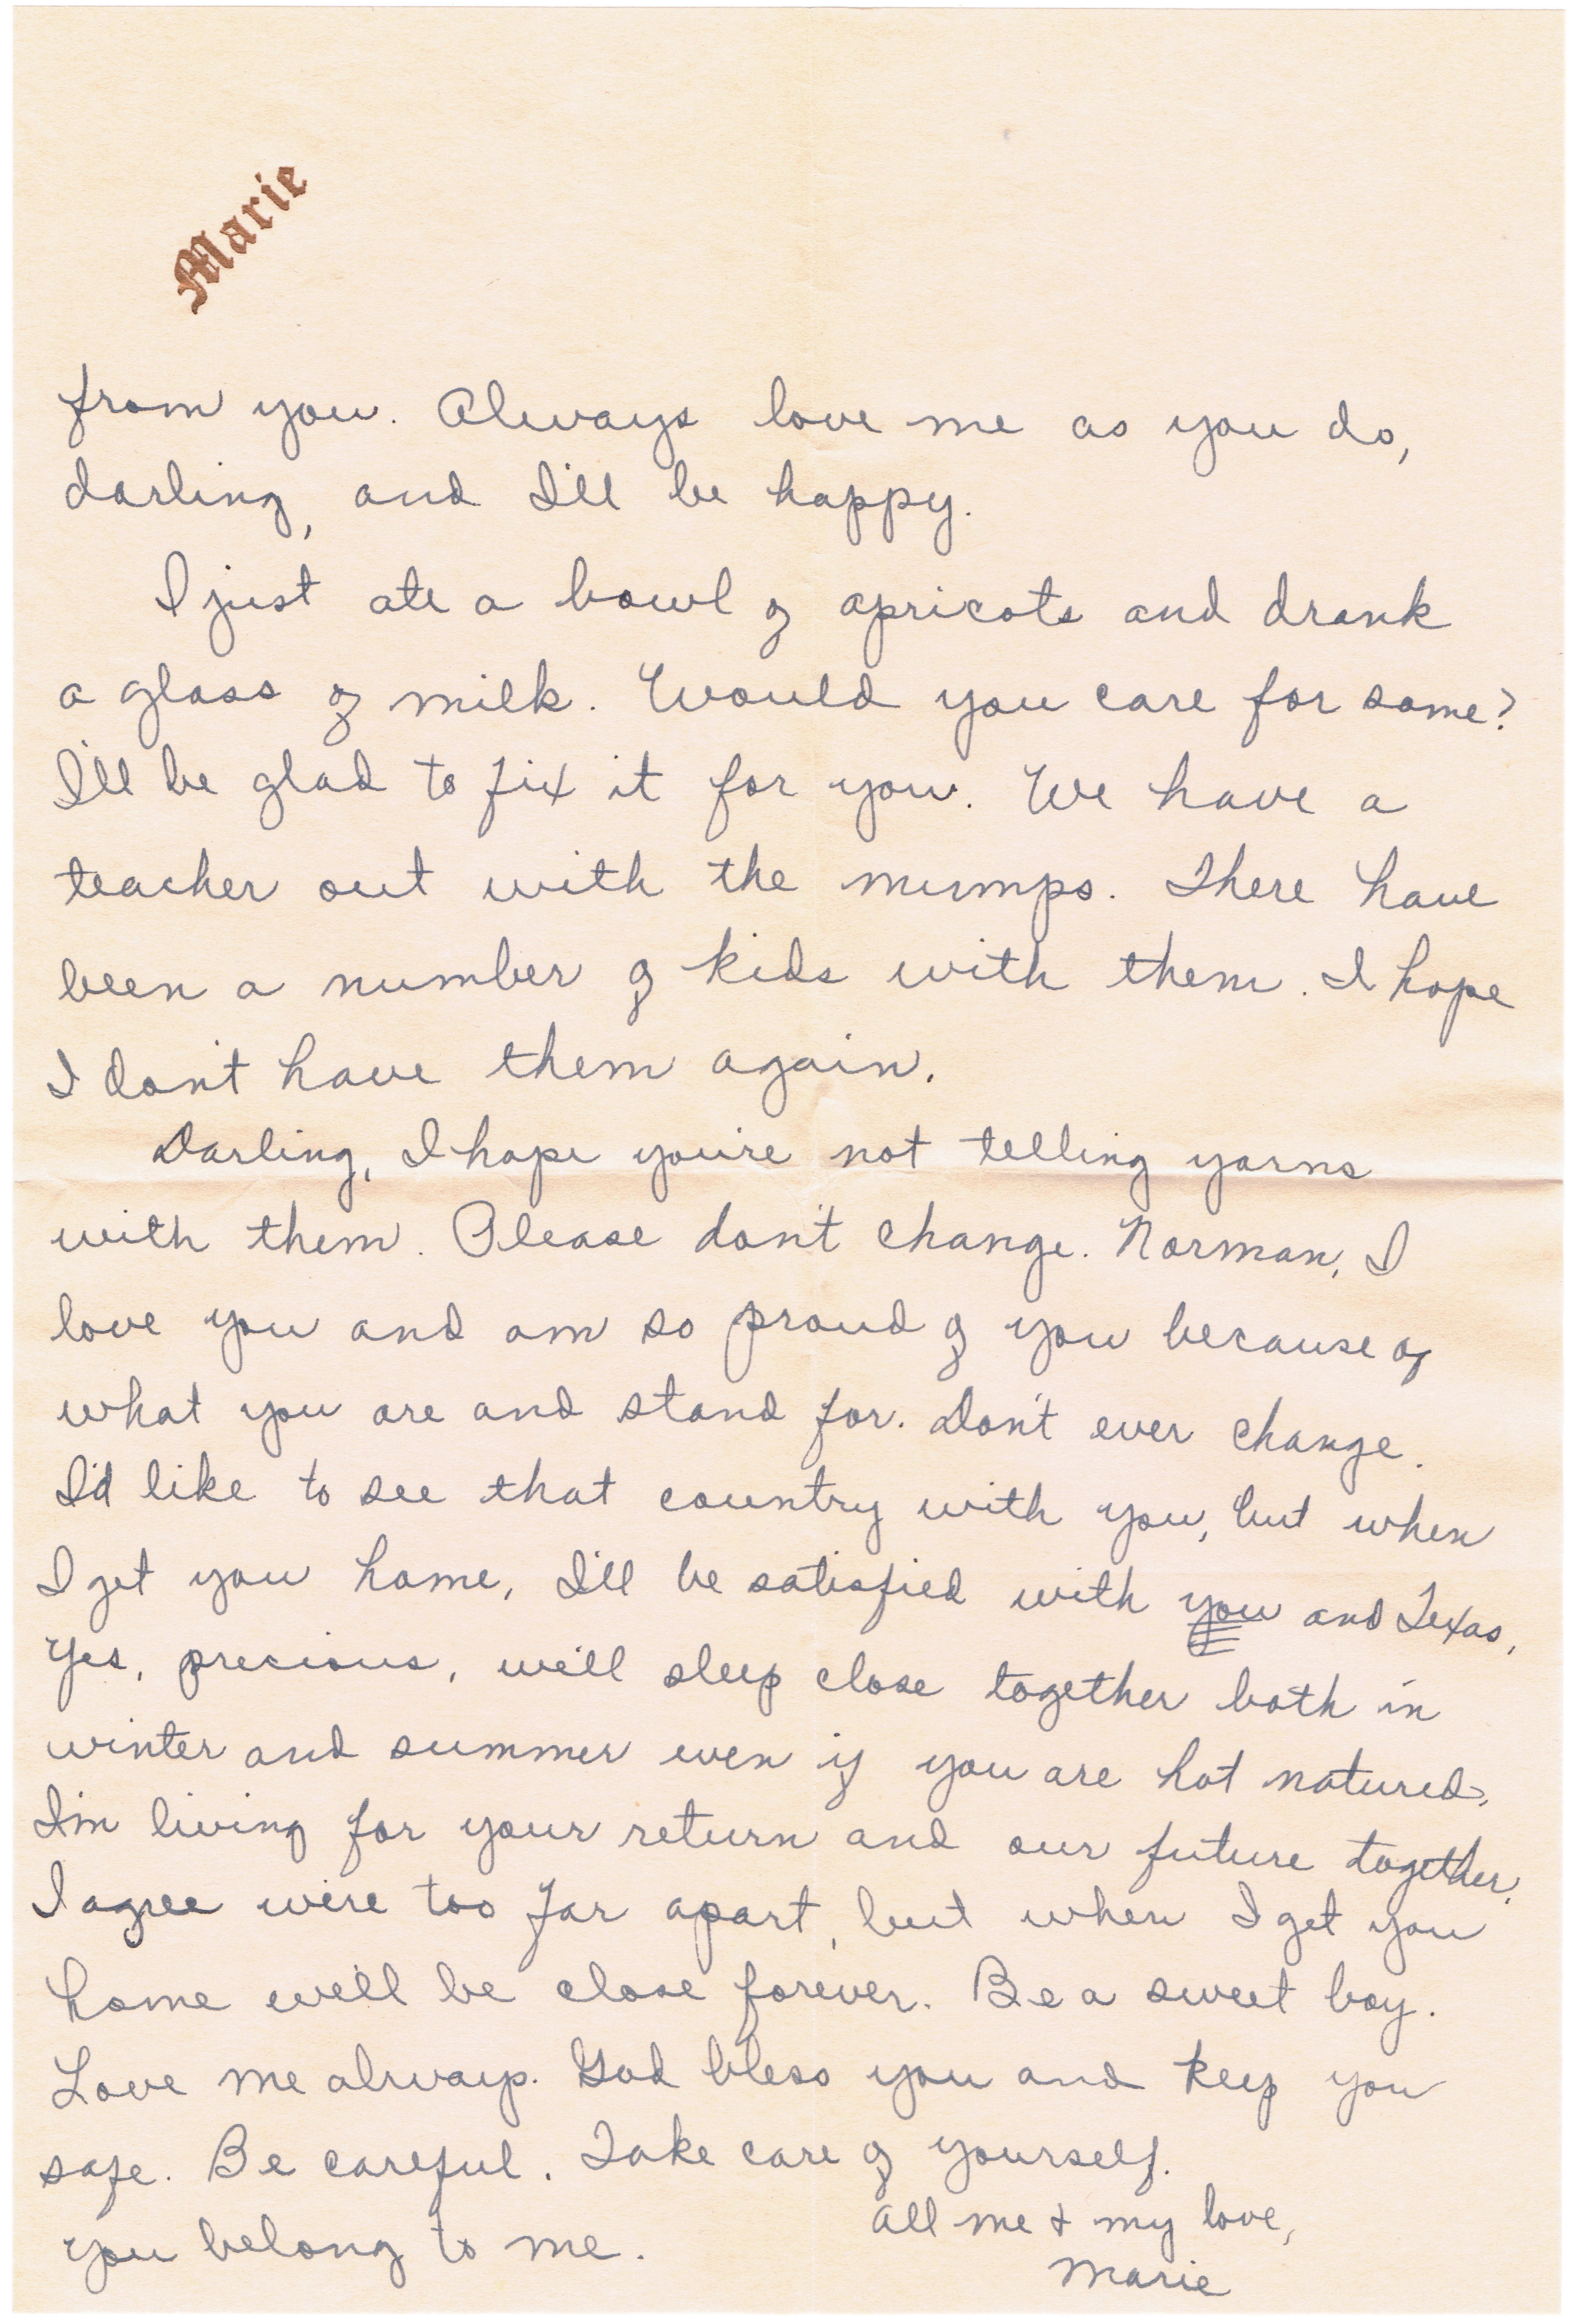 Marie
from you. Always love me as you do,
darling, and I'll be happy.
I just ate a bowl of apricots and drank
a glass of milk. Would you care for some?
I'll be glad to fix it for you. We have a
teacher out with the mumps. There have
been a number of kids with them. I hope
I don't have them again.
Darling, I hope you're not telling yarns
with them. Please don't change. Norman, I
love you and am so proud of you because of
what you are and stand for. Don't ever change.
I'd like to see that country with you, but when
I get you home, I'll be satisfied with you and Texas.
Yes, precious, we'll sleep close together both in
winter and summer even if you are hot natured.
I'm living for your return and our future together.
I agree we're too far apart, but when I get you
home we'll be close forever. Be a sweet boy.
Love me always. God bless you and keep you
safe. Be careful. Take care of yourself.
You belong to me.
All me & my love,
Marie